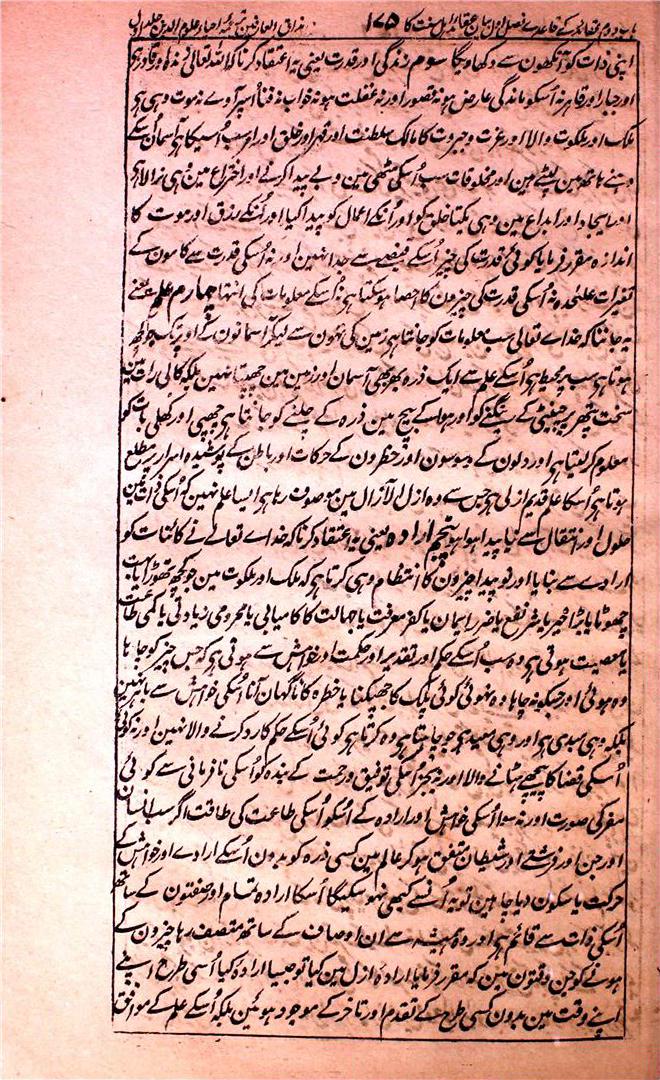 باب دوم عقائد کے قاعدے فصل اول بیان عقائد اہل سنت کا ۱۷۵ مذاق العارفین ترجمہ احیاء علوم الدین جلد اول
اپنی ذات کو آنکھون سے دکھاویگا سوم زندگی اور قدرت یعنی یہ اعتقاد کرنا کہ اللہ تعالیٰ زندہ اور قادر ہی
اور جبار اور قاہر نہ اُسکو ماندگی عارض ہو نہ قصور اور نہ غفلت ہو نہ خواب نہ فنا اُسپر آوے نہ موت وہی ہی
ملک اور ملکوت والا اور عزت و جبروت کا مالک سلطنت اور قہر اور خلق اور امر سب اُسیکا ہی آسمان اُسکے
دہنے ہاتھ مین لپٹے ہین اور مخلوقات سب اُسکی مٹھی مین وہی پیدا کرنے اور اختراع مین وہی نرالا ہی
اور ایجاد اور ابداع مین وہی یکتا خلق کو اور اُنکے اعمال کو پیدا کیا اور اُنکے رزق اور موت کا
اندازہ مقرر فرمایا کوئی قدرت کی چیز اُسکے قبضہ سے جدا نہین اور نہ اُسکی قدرت سے کامون کے
تغیرات علٰحدہ نہ اُسکی قدرت کی چیزون کا احصا ہو سکتا ہی نہ اُسکے معلومات کی انتہا چہارم علم یعنے
یہ جاننا کہ خداے تعالی سب معلومات کو جانتا ہی زمین کی تہون سے لیکر آسمانون کے اوپر تک جو کچھ
ہوتا ہی سب پر محیط ہی اُسکے علم سے ایک ذرہ بھر بھی آسمان اور زمین مین چھپتا نہین بلکہ کالی رات مین
سخت پتھر پر چیونٹی کے رینگنے کو اور ہوا کے بیچ مین ذرہ کے چلنے کو جانتا ہی چھپی اور کھلی بات کو
معلوم کر لیتا ہی اور دلون کے وسوسون اور خطرون کے حرکات اور باطن کے پوشیدہ اسرار پر مطلع
ہوتا ہی اُسکا علم قدیم ازلی ہی جس سے وہ ازل الآزال مین موصوف رہا ہی ایسا علم نہین کہ اُسکی ذات مین
حلول اور انتقال سے نیا پیدا ہوا ہو پنجم ارادہ یعنی یہ اعتقاد کرنا کہ خداے تعالے نے کائنات کو
ارادے سے بنایا اور نو پیدا چیزون کا انتظام وہی کرتا ہی کہ ملک اور ملکوت مین جو کچھ تھوڑا یا بہت
چھوٹا یا بڑا خیر یا شر نفع یا ضرر ایمان یا کفر معرفت یا جہالت کامیابی یا محرومی زیادتی یا کمی طاعت
یا معصیت ہوتی ہی وہ سب اُسکے حکم اور تقدیر اور حکمت اور خواہش سے ہوتی ہی کہ جس چیز کو چاہا
وہ ہوئی اور جسکو نہ چاہا وہ نہوئی کوئی پلک کا جھپکنا یا خطرہ کا ناگہان آنا اُسکی خواہش سے باہر نہین
بلکہ وہی مبدی ہی اور وہی معید ہی جو چاہتا ہی وہ کرتا ہی کوئی اُسکے حکم کا رد کرنے والا نہین اور نہ کوئی
اُسکی قضا کا پیچھے ہٹانے والا اور نہ بجز اُسکی توفیق و رحمت کے بندہ کو اُسکی نافرمانی سے کوئی
مفر کی صورت اور نہ سوا اُسکی خواہش اور ارادہ کے اُسکو اُسکی طاعت کی طاقت اگر سب انسان
اور جن اور فرشتے اور شیطان متفق ہو کر عالم مین کسی ذرہ کو بدون اُسکے ارادے اور خواہش کے
حرکت یا سکون دیا چاہین تو یہ اُنسے کبھی نہو سکیگا اُسکا ارادہ تمام اور صفتون کے ساتھ
اُسکی ذات سے قائم ہی اور وہ ہمیشہ سے ان اوصاف کے ساتھ متصف رہا چیزون کے
ہونے کو جن وقتون مین کہ مقرر فرمایا ارادہ ازل مین کیا تو جیسا ارادہ کیا اُسی طرح اپنے
اپنے وقت مین بدون کسی طرح کے تقدم اور تاخر کے موجود ہوئین بلکہ اُسکے علم کے موافق